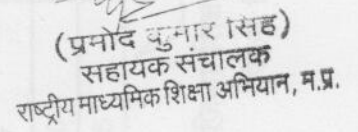 (प्रमोद कुमार सिंह)
सहायक संचालक
राष्ट्रीय माध्यमिक शिक्षा अभियान, म.प्र.